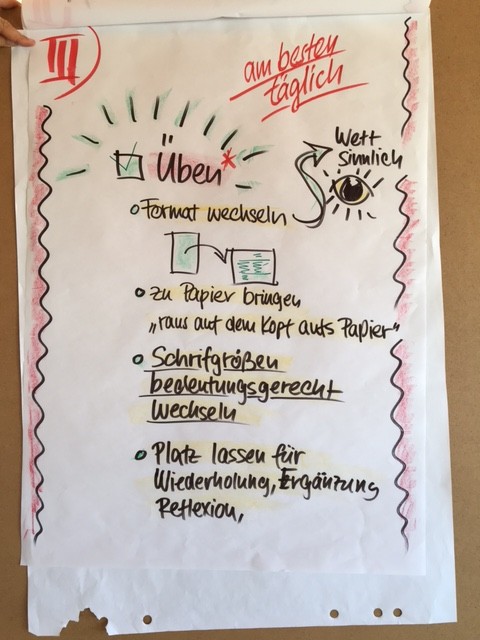 III
am besten
täglich
Üben*
Wett
sinnlich
Format wechseln
zu Papier bringen
„raus auf dem Kopf aufs Papier"
Schrifgrößen
bedeutungsgerecht
wechseln
Platz lassen für
Wiederholung, Ergänzung
Reflexion,